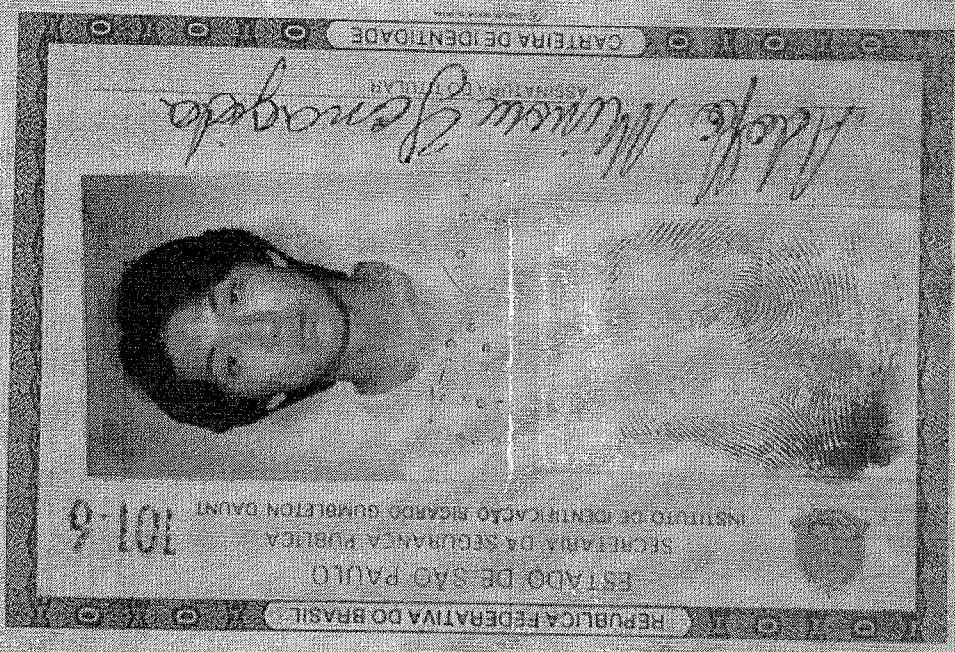 REPÚBLICA FEDERATIVA DO BRASIL
ESTADO DE SÃO PAULO
SECRETARIA DA SEGURANÇA PÚBLICA
INSTITUTO DE IDENTIFICAÇÃO RICARDO GUMBLETON DAUNT
101-6
ASSINATURA DO TITULAR
CARTEIRA DE IDENTIDADE